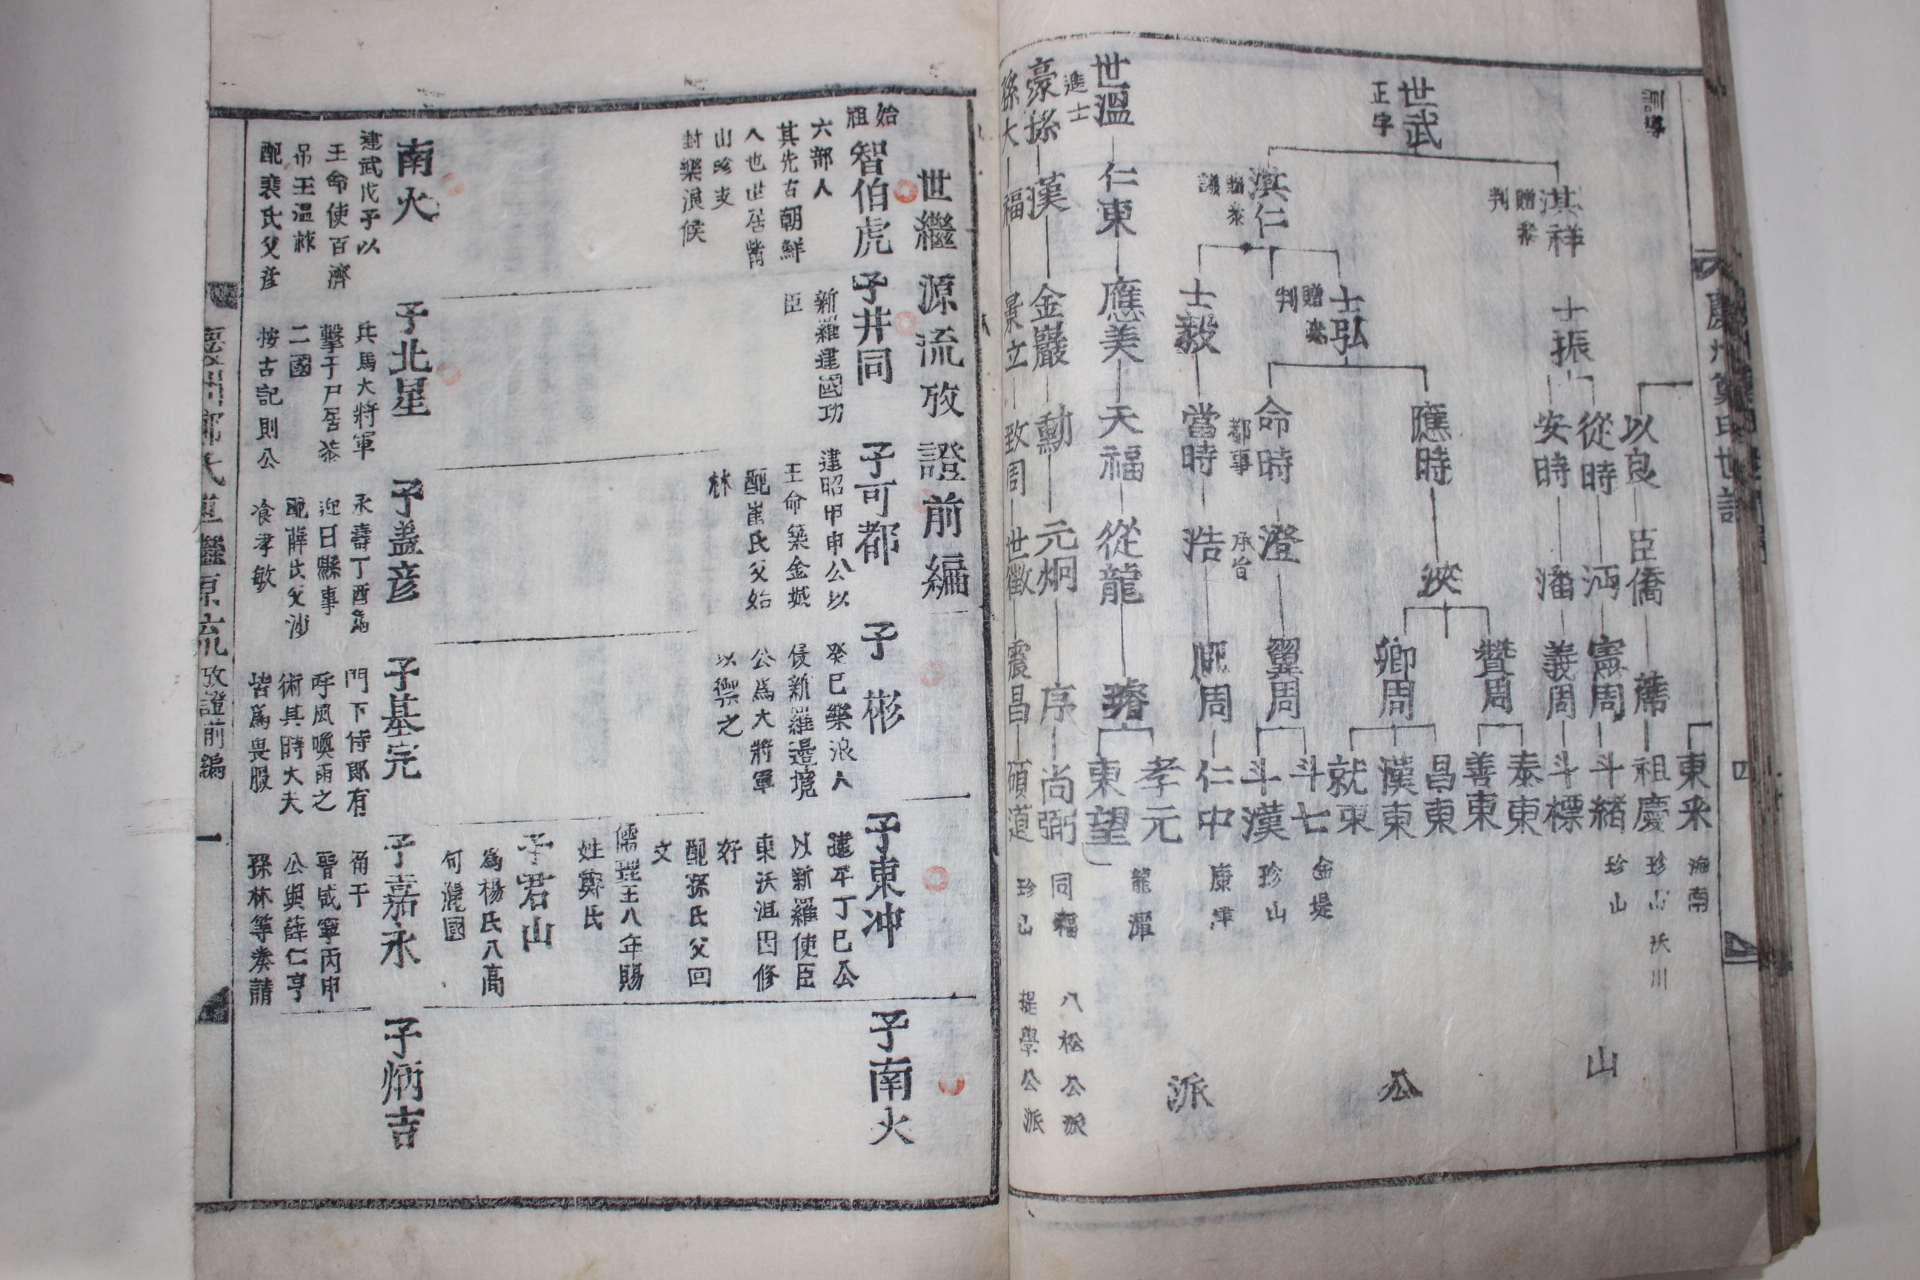 訓導
世武
正字
淇祥
淇仁
士振
士弘
士毅
以良
從時
安時
應時
命時
都事
當時
臣僑
沔
潘
浹
澄
承旨
浩
憲周
義周
贊周
卿周
翼周
東來
祖慶
斗緒
斗標
泰東
善東
昌東
漢東
就東
斗七
斗漢
仁中
海南
珍山
沃川
珍山
金堤
珍山
康津
山
公
派
世溫
仁東
應美
天福
從龍
孝元
東望
龍潭
進士
豪孫
漢
金巖
勳
元炯
序
尚弼
同福
八松公派
孫大
福
景立
致周
世徵
震昌
碩道
珍山
提學公派
世繼源流攷證前編
始祖
智伯虎
六部人
其先古朝鮮
人也世居觜
山珍支
封樂浪侯
子井同
新羅建國功
臣
子可都
建昭甲申公以
王命築金城
配崔氏父始
林
子彬
癸巳樂浪人
侵新羅邊境
公爲大將軍
以禦之
子東冲
建平丁巳公
以新羅使臣
東沃沮因修
好
配孫氏父回
文
儒理王八年賜
姓鄭氏
子君山
爲楊氏八高
句麗國
子南火
南火
建武戊子以
王命使百濟
吊王溫祚
配裵氏父彦
子北星
兵馬大將軍
擊于尸居柒
二國
按古記則公
子盖彦
永壽丁酉爲
迎日縣事
配薛氏父沙
飡孝敏
子基完
門下侍郎有
呼風喚雨之
術其時大夫
皆爲畏服
子嘉永
角干
晋咸寧丙申
公與薛仁亨
孫林等奏請
子炳吉
慶州鄭氏世繼源流攷證前編
一